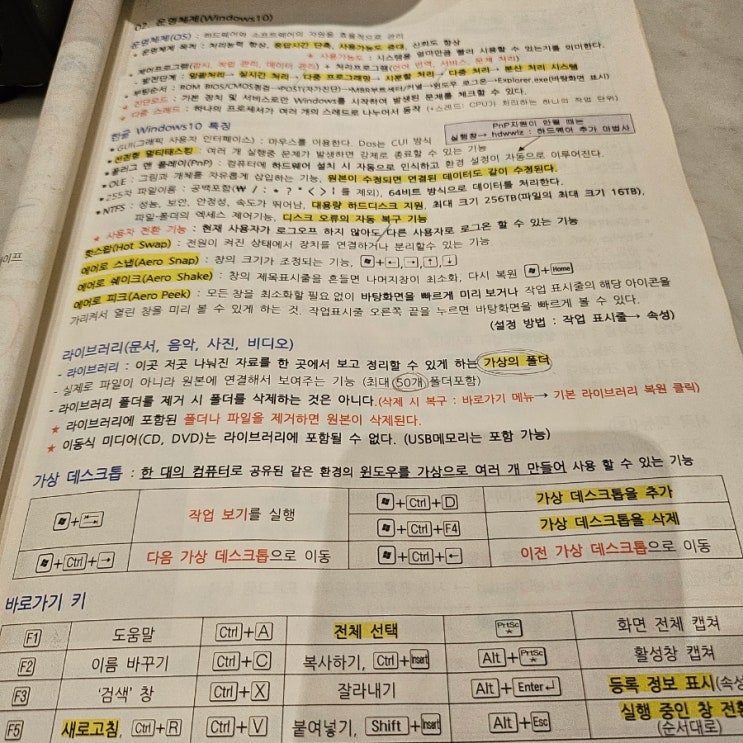 02. 운영체제(Windows10)
운영체제(OS) : 하드웨어와 소프트웨어의 자원을 효율적으로 관리
• 운영체제 목적 : 처리능력 향상, 응답시간 단축, 사용가능도 증대, 신뢰도 향상
★ 사용가능도 : 시스템을 얼마만큼 빨리 사용할 수 있는가를 의미한다.
• 제어프로그램(감시, 작업 관리, 데이터 관리) + 처리프로그램(언어 번역, 서비스, 문제 처리)
• 발전단계 : 일괄처리→ 실시간 처리→ 다중 프로그래밍→ 시분할 처리→ 다중 처리→ 분산 처리 시스템
• 부팅순서 : ROM BIOS/CMOS점검→POST(자가진단)→MBR부트섹터/커널→윈도우 로그온→Explorer.exe(바탕화면 표시)
★ 안전모드 : 기본 장치 및 서비스로만 Windows를 시작하여 발생된 문제를 체크할 수 있다.
★ 다중 스레드 : 하나의 프로세서가 여러 개의 스레드로 나누어서 동작 (+스레드: CPU가 처리하는 하나의 작업 단위)
한글 Windows10 특징
PnP지원이 안될 때는
실행창→ hdwwiz : 하드웨어 추가 마법사
• GUI(그래픽 사용자 인터페이스) : 마우스를 이용한다. Dos는 CUI 방식
• 선점형 멀티태스킹 : 여러 개 실행중 문제가 발생하면 강제로 종료할 수 있는 기능
• 플러그 앤 플레이(PnP) : 컴퓨터에 하드웨어 설치 시 자동으로 인식하고 환경 설정이 자동으로 이루어진다.
• OLE : 그림과 개체를 자유롭게 삽입하는 기능, 원본이 수정되면 연결된 데이터도 같이 수정된다.
• 255자 파일이름 : 공백포함(₩ / : * ? " < > | 를 제외), 64비트 방식으로 데이터를 처리한다.
• NTFS : 성능, 보안, 안정성, 속도가 뛰어남, 대용량 하드디스크 지원, 최대 크기 256TB(파일의 최대 크기 16TB),
파일·폴더의 엑세스 제어기능, 디스크 오류의 자동 복구 기능
★ 사용자 전환 기능 : 현재 사용자가 로그오프 하지 않아도 다른 사용자로 로그온 할 수 있는 기능
핫스왑(Hot Swap) : 전원이 켜진 상태에서 장치를 연결하거나 분리할수 있는 기능
에어로 스냅(Aero Snap) : 창의 크기가 조정되는 기능, +←,→,↑,↓
에어로 쉐이크(Aero Shake) : 창의 제목표시줄을 흔들면 나머지창이 최소화, 다시 복원 +Home
에어로 피크(Aero Peek) : 모든 창을 최소화할 필요 없이 바탕화면을 빠르게 미리 보거나 작업 표시줄의 해당 아이콘을
가리켜서 열린 창을 미리 볼 수 있게 하는 것. 작업표시줄 오른쪽 끝을 누르면 바탕화면을 빠르게 볼 수 있다.
(설정 방법 : 작업 표시줄→ 속성)
라이브러리(문서, 음악, 사진, 비디오)
- 라이브러리 : 이곳 저곳 나눠진 자료를 한 곳에서 보고 정리할 수 있게 하는 가상의 폴더
- 실제로 파일이 아니라 원본에 연결해서 보여주는 기능 (최대 50개 폴더포함)
- 라이브러리 폴더를 제거 시 폴더를 삭제하는 것은 아니다.(삭제 시 복구 : 바로가기 메뉴→ 기본 라이브러리 복원 클릭)
★ 라이브러리에 포함된 폴더나 파일을 제거하면 원본이 삭제된다.
★ 이동식 미디어(CD, DVD)는 라이브러리에 포함될 수 없다. (USB메모리는 포함 가능)
가상 데스크톱 : 한 대의 컴퓨터로 공유된 같은 환경의 윈도우를 가상으로 여러 개 만들어 사용 할 수 있는 기능
작업 보기를 실행
+Ctrl+D 가상 데스크톱을 추가
+Ctrl+F4 가상 데스크톱을 삭제
+Ctrl+→ 다음 가상 데스크톱으로 이동 +Ctrl+← 이전 가상 데스크톱으로 이동
바로가기 키
F1 도움말 Ctrl+A 전체 선택 PrtSc 화면 전체 캡쳐
F2 이름 바꾸기 Ctrl+C 복사하기, Ctrl+Insert Alt+PrtSc 활성창 캡쳐
F3 '검색' 창 Ctrl+X 잘라내기 Alt+Enter↵ 등록 정보 표시(속성
F5 새로고침, Ctrl+R Ctrl+V 붙여넣기, Shift+Insert Alt+Esc 실행 중인 창 전환
(순서대로)